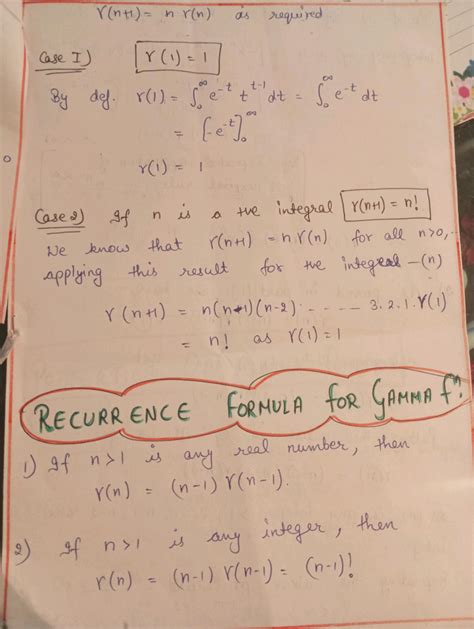 γ(n+1) = n γ(n) as required
Case I) γ(1) = 1
By def. γ(1) = ∫₀^∞ e^-t t^1-1 dt = ∫₀^∞ e^-t dt
= [-e^-t]₀^∞
γ(1) = 1
Case 2) If n is a +ve integral γ(n+1) = n!
We know that γ(n+1) = n γ(n) for all n>0,
applying this result for +ve integral -(n)
γ(n+1) = n(n-1)(n-2) ..... 3.2.1.γ(1)
= n! as γ(1) = 1
RECURRENCE FORMULA FOR GAMMA fⁿ:
1) If n>1 is any real number, then
γ(n) = (n-1) γ(n-1).
2) If n>1 is any integer, then
γ(n) = (n-1) γ(n-1) = (n-1)!